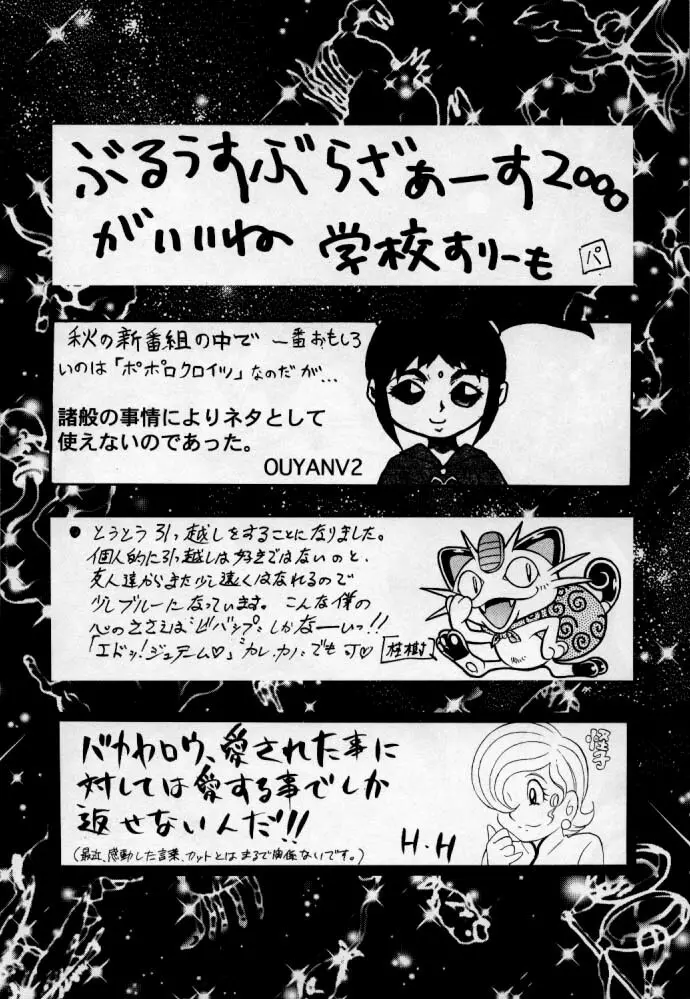 ぶるうすぶらざぁーす2000
がいいね 学校すりーも パ
秋の新番組の中で 一番おもしろ
いのは「ポポロクロイツ」なのだが…
諸般の事情によりネタとして
使えないのであった。
OUYANV2
● とうとう引っ越しをすることになりました。
個人的に引っ越しは好きではないのと、
友人達からまた少し遠くはなれるので
少しブルーになっています。こんな僕の
心のささえは"ビバップ"しかなーいっ!!
「エドッ!ジュテーム♡」"カレカノ"でも可♡ 桂樹
怪子
バカヤロウ、愛された事に
対しては愛する事でしか
返せないんだ!!
H.H
(最近、感動した言葉、カットとはまるで関係ないです。)